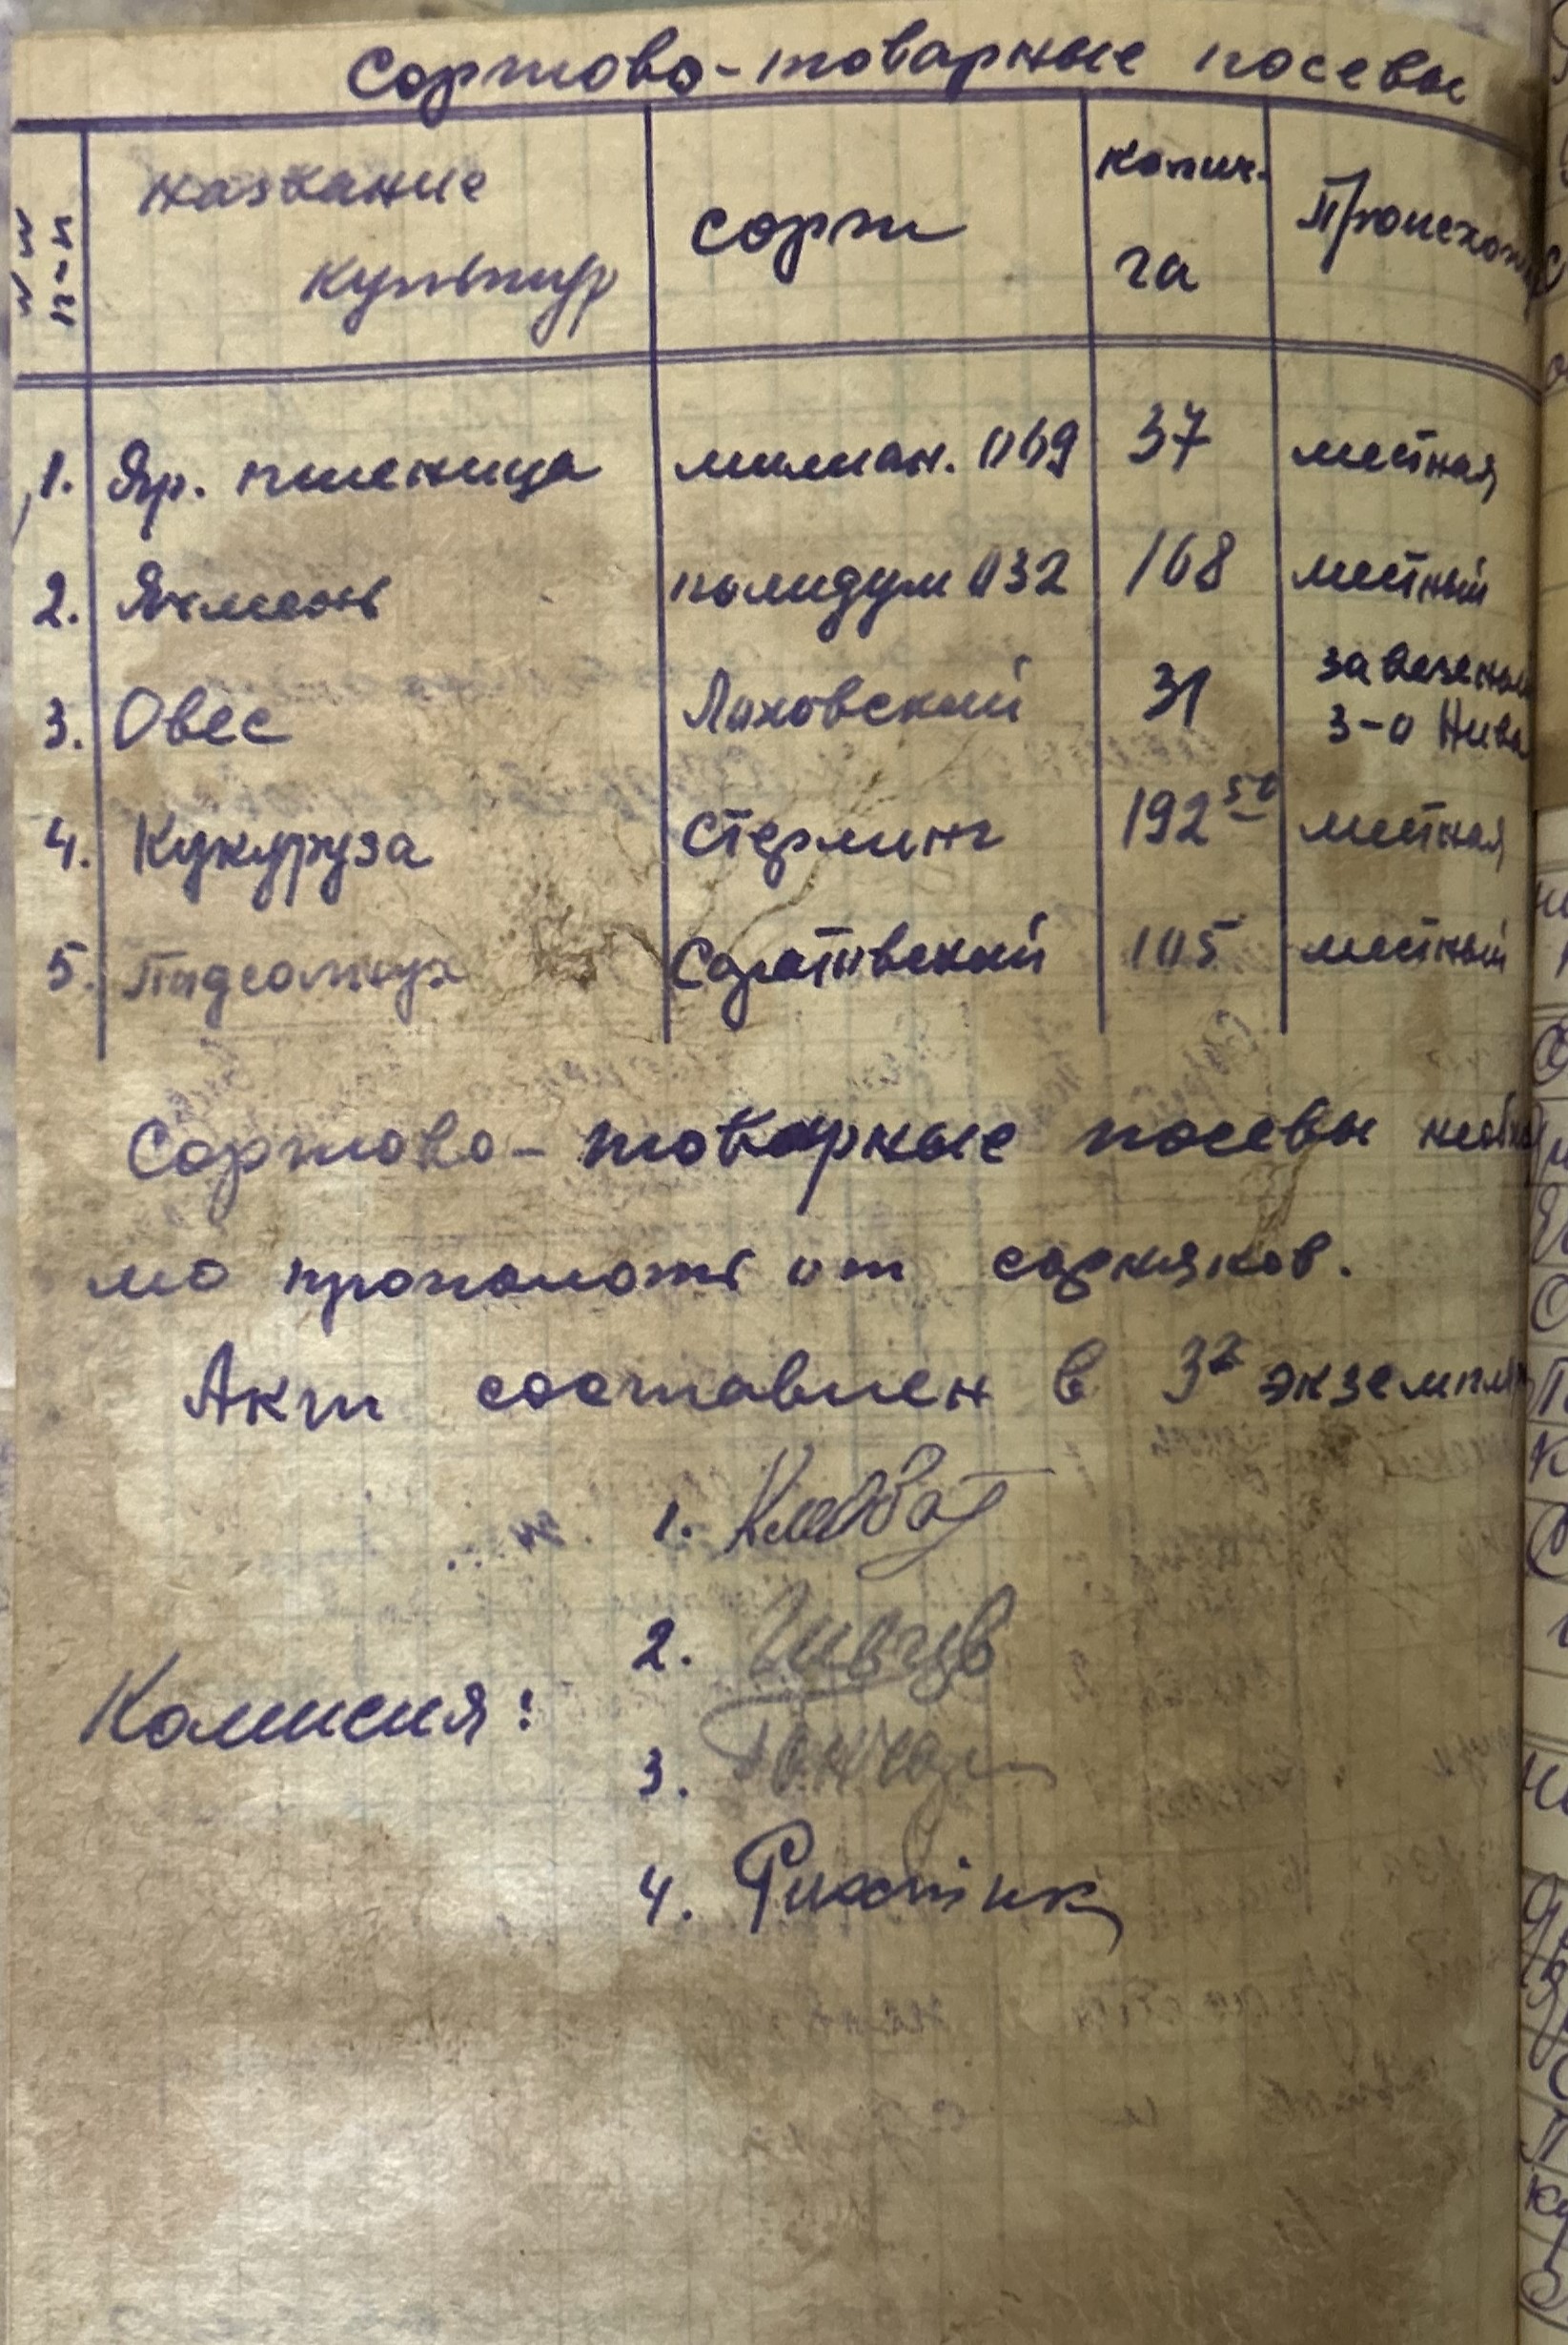 Сортово-товарные посевы
№ № п-п
название культур
сорт
колич. га
Происхож
1. Яр. пшеница мильтан. 069 37 местная
2. Ячмень палидум 032 108 местный
3. Овес Лоховский 31 завезенный
з-о Нива
4. Кукуруза Стерлинг 192 50 местная
5. Подсолнух Саратовский 105 местный
Сортово-товарные посевы необхо
мо прополоть от сорняков.
Акт составлен в 3х экземпля
1.
2.
Комисия:
3. Гончар
4.